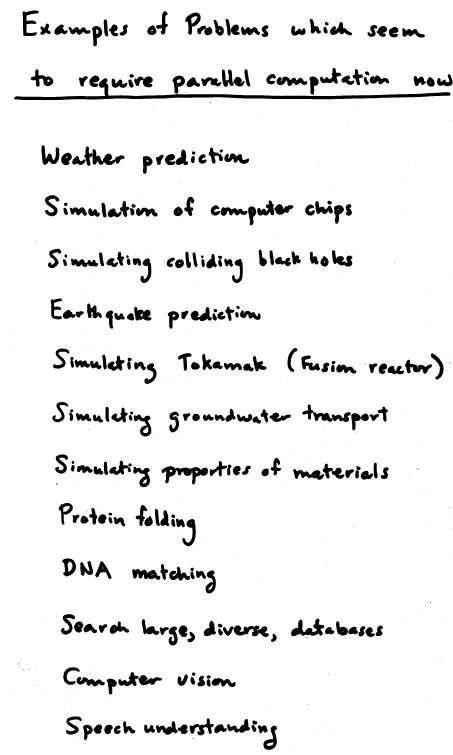 Examples of Problems which seem
to require parallel computation now
Weather prediction
Simulation of computer chips
Simulating colliding black holes
Earthquake prediction
Simulating Tokamak (Fusion reactor)
Simulating groundwater transport
Simulating properties of materials
Protein folding
DNA matching
Search large, diverse, databases
Computer vision
Speech understanding